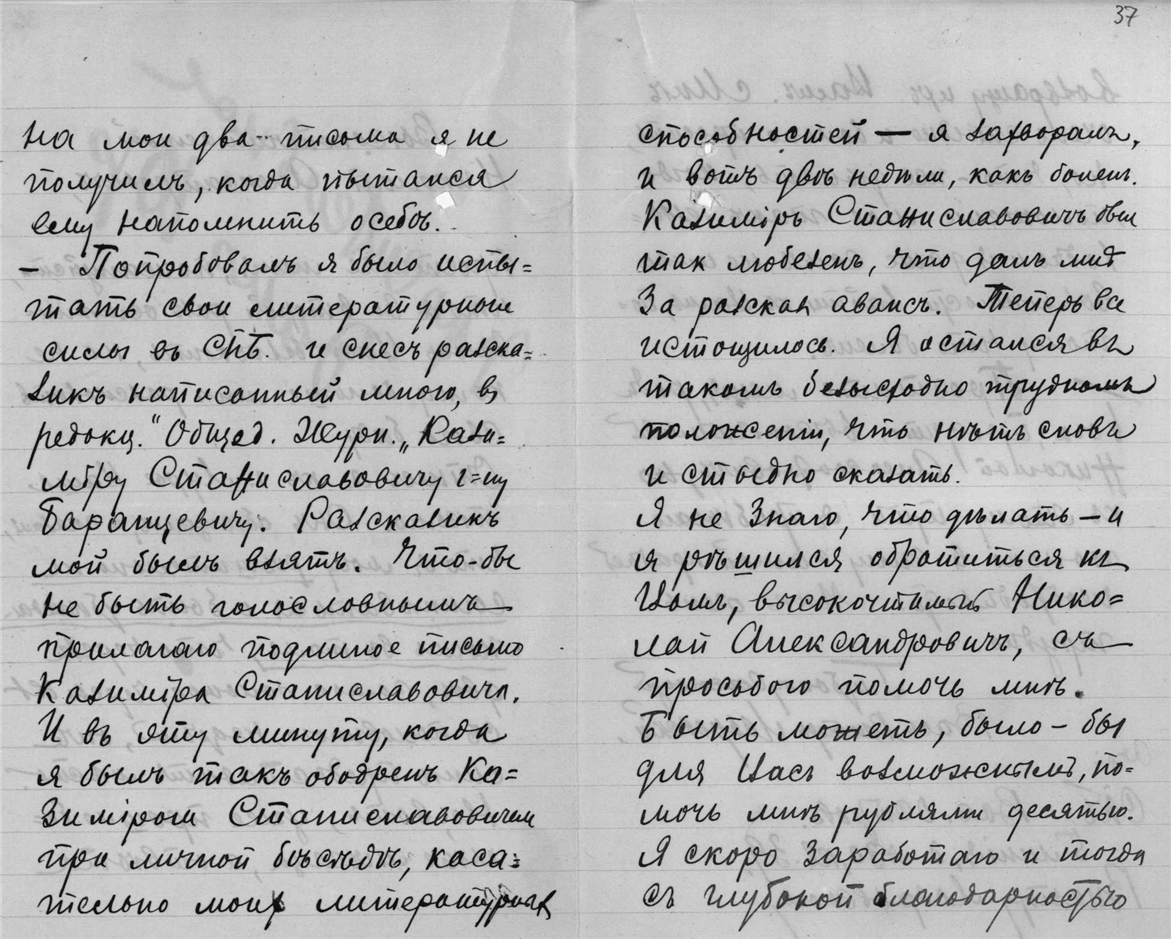 на мои два письма я не
получилъ, когда пытался
ему напомнить о себѣ.
— Попробовалъ я было испы=
тать свои литературныя
силы въ СПБ. и снесъ разска=
зикъ написанный мною, въ
редакц. "Общед. Журн." Кази=
міру Станиславовичу г=ну
Баранцевичу. Разсказикъ
мой былъ взятъ. Что-бы
не быть голословнымъ
прилагаю подлиное письмо
Казиміра Станиславовича.
И въ эту минуту, когда
я былъ такъ ободренъ Ка=
зиміромъ Станиславовичемъ
при личной бѣсѣдѣ, каса=
тельно моихъ литературныхъ
37
способностей — я захворалъ,
и вотъ двѣ недѣли, какъ боленъ.
Казиміръ Станиславовичъ былъ
такъ любезенъ, что далъ мнѣ
за разсказъ авансъ. Теперь все
истощилось. Я остался въ
такомъ безысходно трудномъ
положеніи, что нѣтъ словъ
и стыдно сказать.
Я не знаю, что дѣлать — и
я рѣшился обратиться къ
Вамъ, высокочтимый Нико=
лай Александровичъ, съ
просьбою помочь мнѣ.
Быть можетъ, было-бы
для Васъ возможнымъ, по=
мочь мнѣ рублями десятью.
Я скоро заработаю и тогда
съ глубокой благодарностью